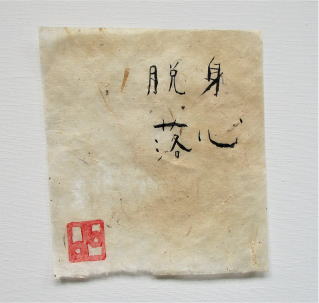 身心
脱落